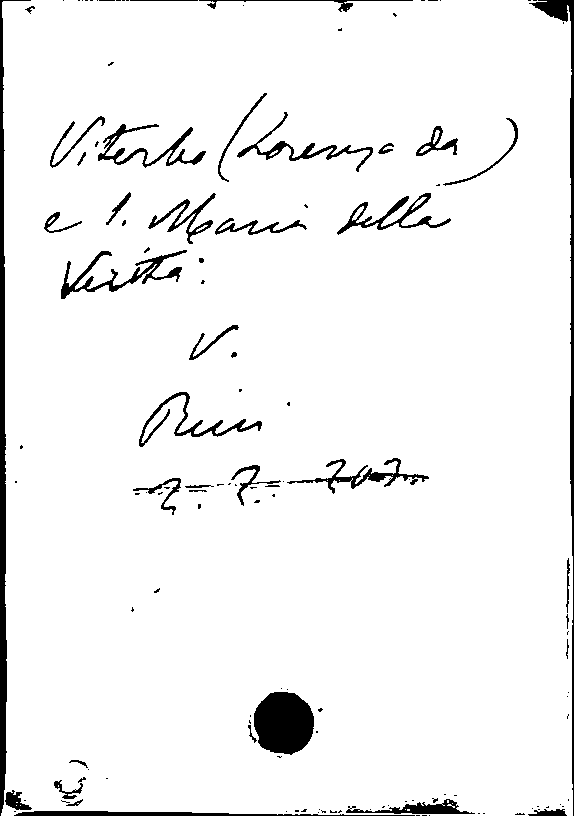 Viterbo (Lorenzo da)
e S. Maria della
Verità:
V.